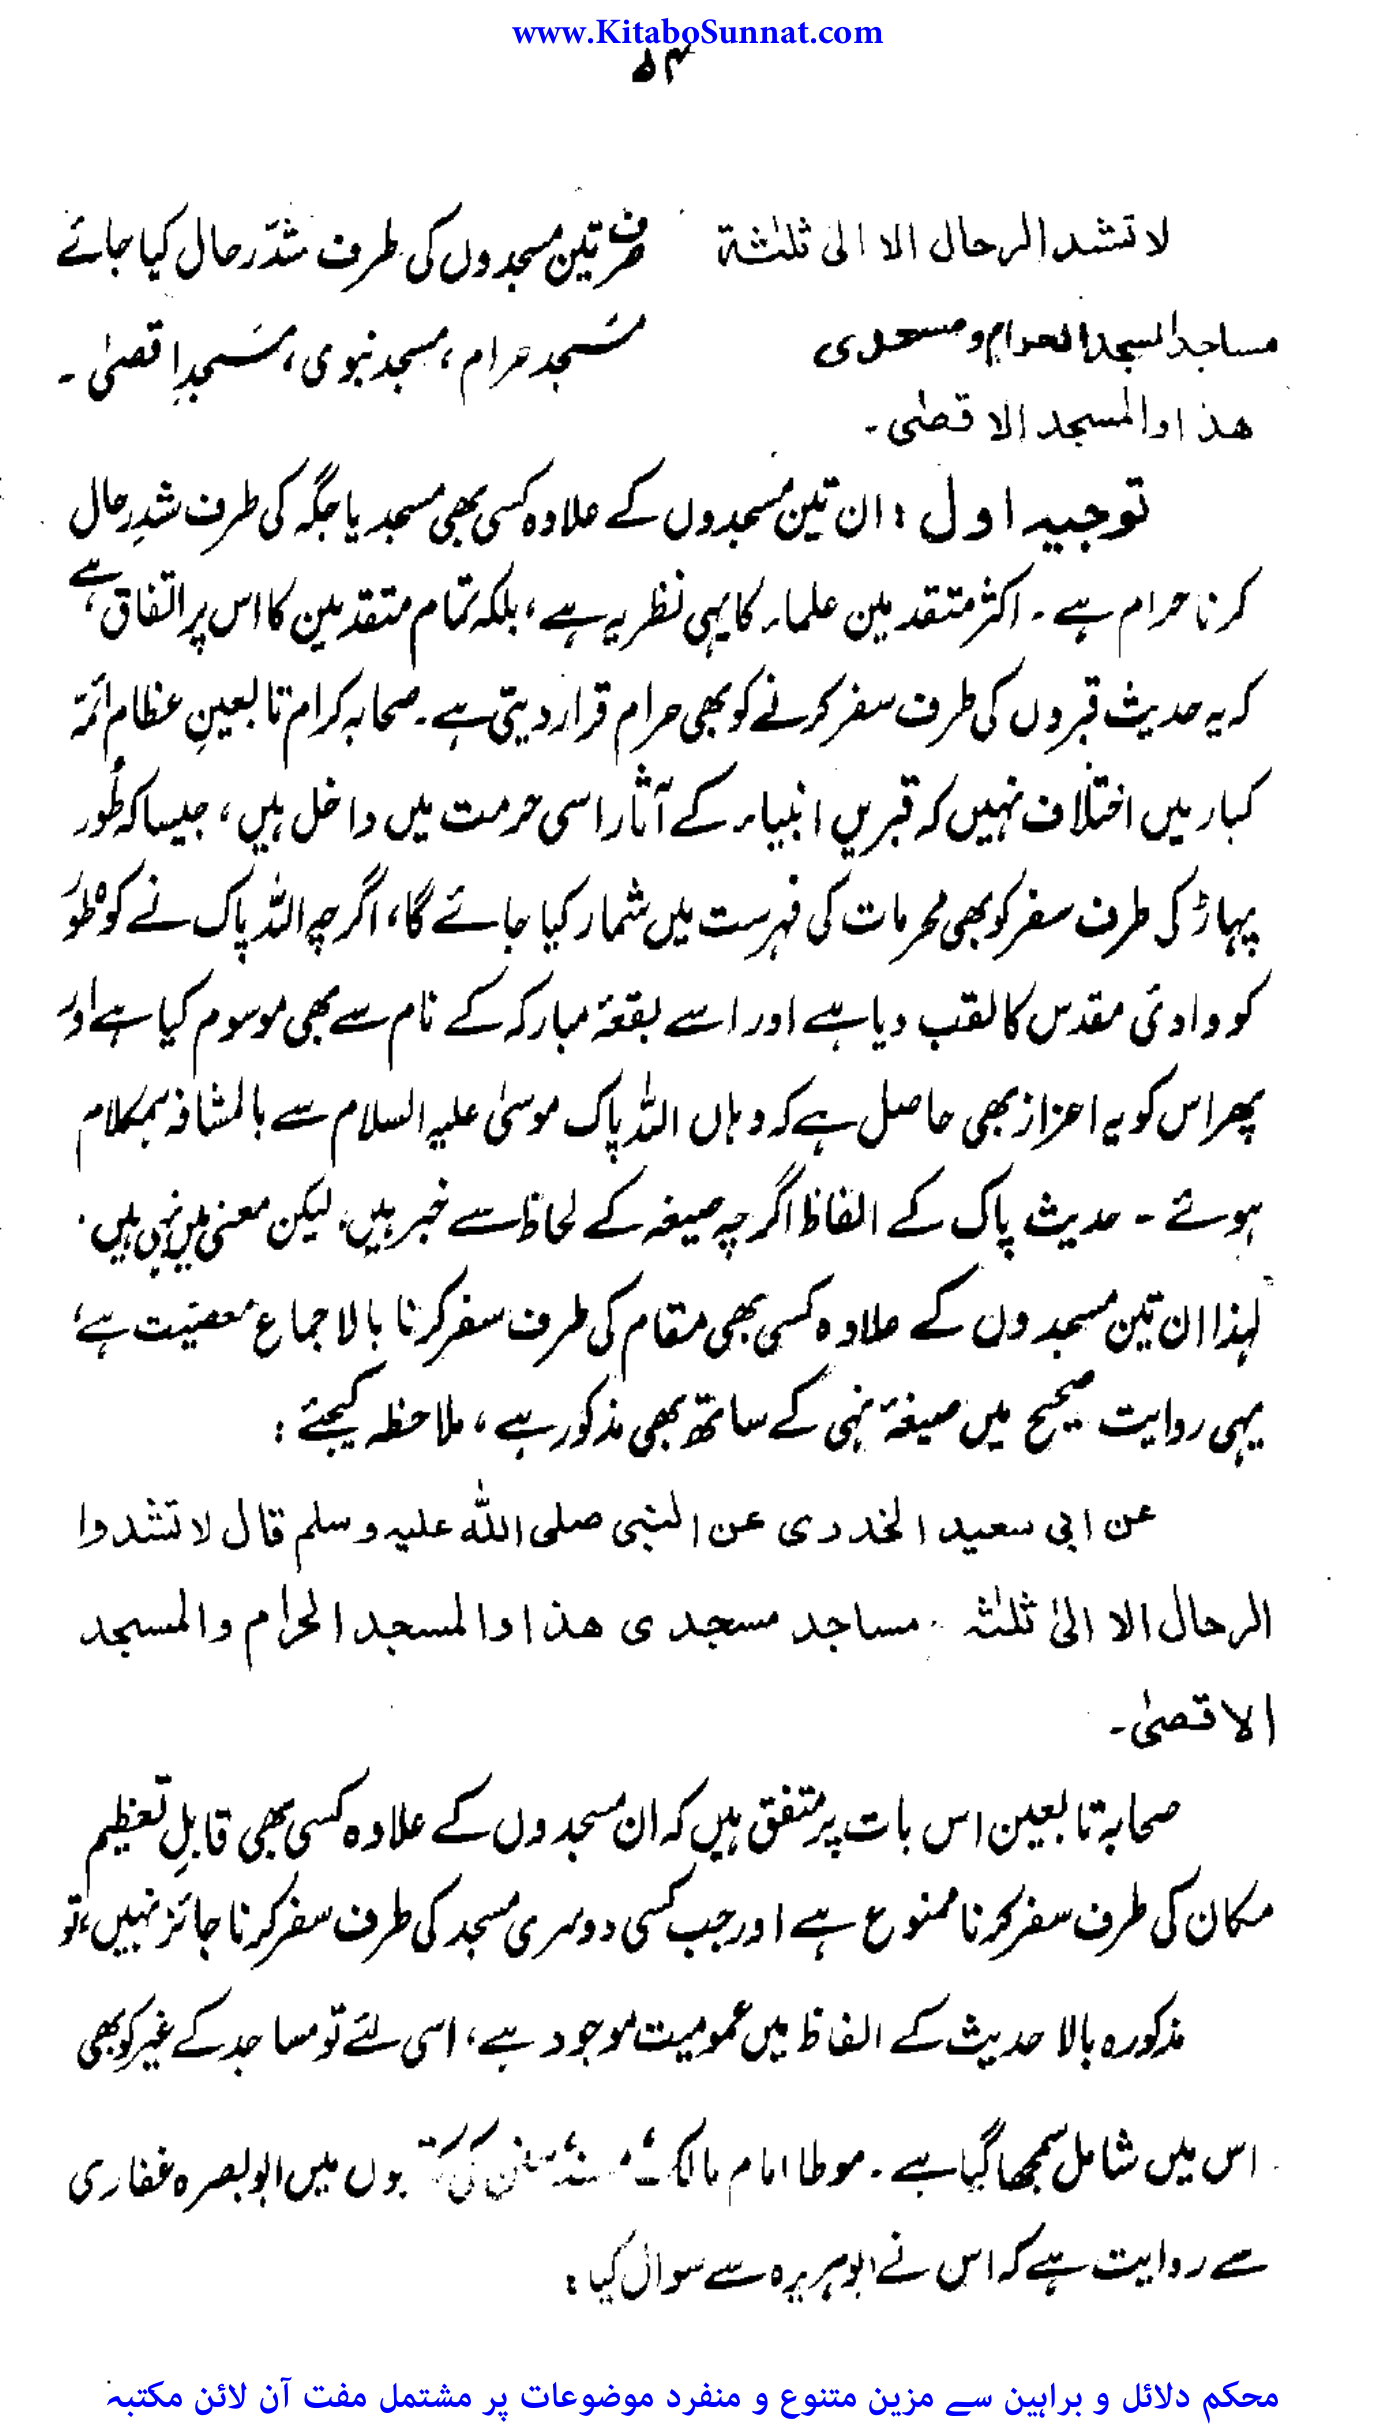 www.KitaboSunnat.com
۵۴
لا تشد الرحال الا الیٰ ثلثة
مساجد المسجد الحرام و مسجدی
ھذا والمسجد الاقصٰی۔
صرف تین مسجدوں کی طرف شدّ رحال کیا جائے
مسجد حرام، مسجد نبوی، مسجدِ اقصیٰ۔
توجیہ اول : ان تین مسجدوں کے علاوہ کسی بھی مسجد یا جگہ کی طرف شدِ رحال
کرنا حرام ہے۔ اکثر متقدمین علماء کا یہی نظریہ ہے، بلکہ تمام متقدمین کا اس پر اتفاق ہے،
کہ یہ حدیث قبروں کی طرف سفر کرنے کو بھی حرام قرار دیتی ہے۔ صحابہ کرام تابعینِ عظام ائمۃ
کبار میں اختلاف نہیں کہ قبریں انبیاء کے آثار اسی حرمت میں داخل ہیں، جیسا کہ طُور
پہاڑ کی طرف سفر کو بھی محرمات کی فہرست میں شمار کیا جائے گا، اگرچہ اللہ پاک نے کوہ طُور
کو وادیٔ مقدس کا لقب دیا ہے اور اسے بقعۂ مبارکہ کے نام سے بھی موسوم کیا ہے اور
پھر اس کو یہ اعزاز بھی حاصل ہے کہ وہاں اللہ پاک موسیٰ علیہ السلام سے بالمشافہ ہمکلام
ہوئے۔ حدیث پاک کے الفاظ اگرچہ صیغہ کے لحاظ سے خبر ہیں، لیکن معنی میں نہی ہیں۔
لہٰذا ان تین مسجدوں کے علاوہ کسی بھی مقام کی طرف سفر کرنا بالاجماع معصیت ہے،
یہی روایت صحیح میں صیغۂ نہی کے ساتھ بھی مذکور ہے، ملاحظہ کیجئے :
عن ابی سعید الخدری عن النبی صلی اللہ علیہ وسلم قال لا تشدوا
الرحال الا الیٰ ثلثہ مساجد مسجدی ھذا والمسجد الحرام والمسجد
الاقصیٰ۔
صحابہ تابعین اس بات پر متفق ہیں کہ ان مسجدوں کے علاوہ کسی بھی قابلِ تعظیم
مکان کی طرف سفر کرنا ممنوع ہے اور جب کسی دوسری مسجد کی طرف سفر کرنا جائز نہیں، تو
مذکورہ بالا حدیث کے الفاظ میں عمومیت موجود ہے، اسی لئے تو مساجد کے غیر کو بھی
اس میں شامل سمجھا گیا ہے۔ موطا امام مالک، مسند، سنن کی کتابوں میں ابو بصرہ غفاری
سے روایت ہے کہ اس نے ابوہریرہ سے سوال کیا :
محکم دلائل و براہین سے مزین متنوع و منفرد موضوعات پر مشتمل مفت آن لائن مکتبہ